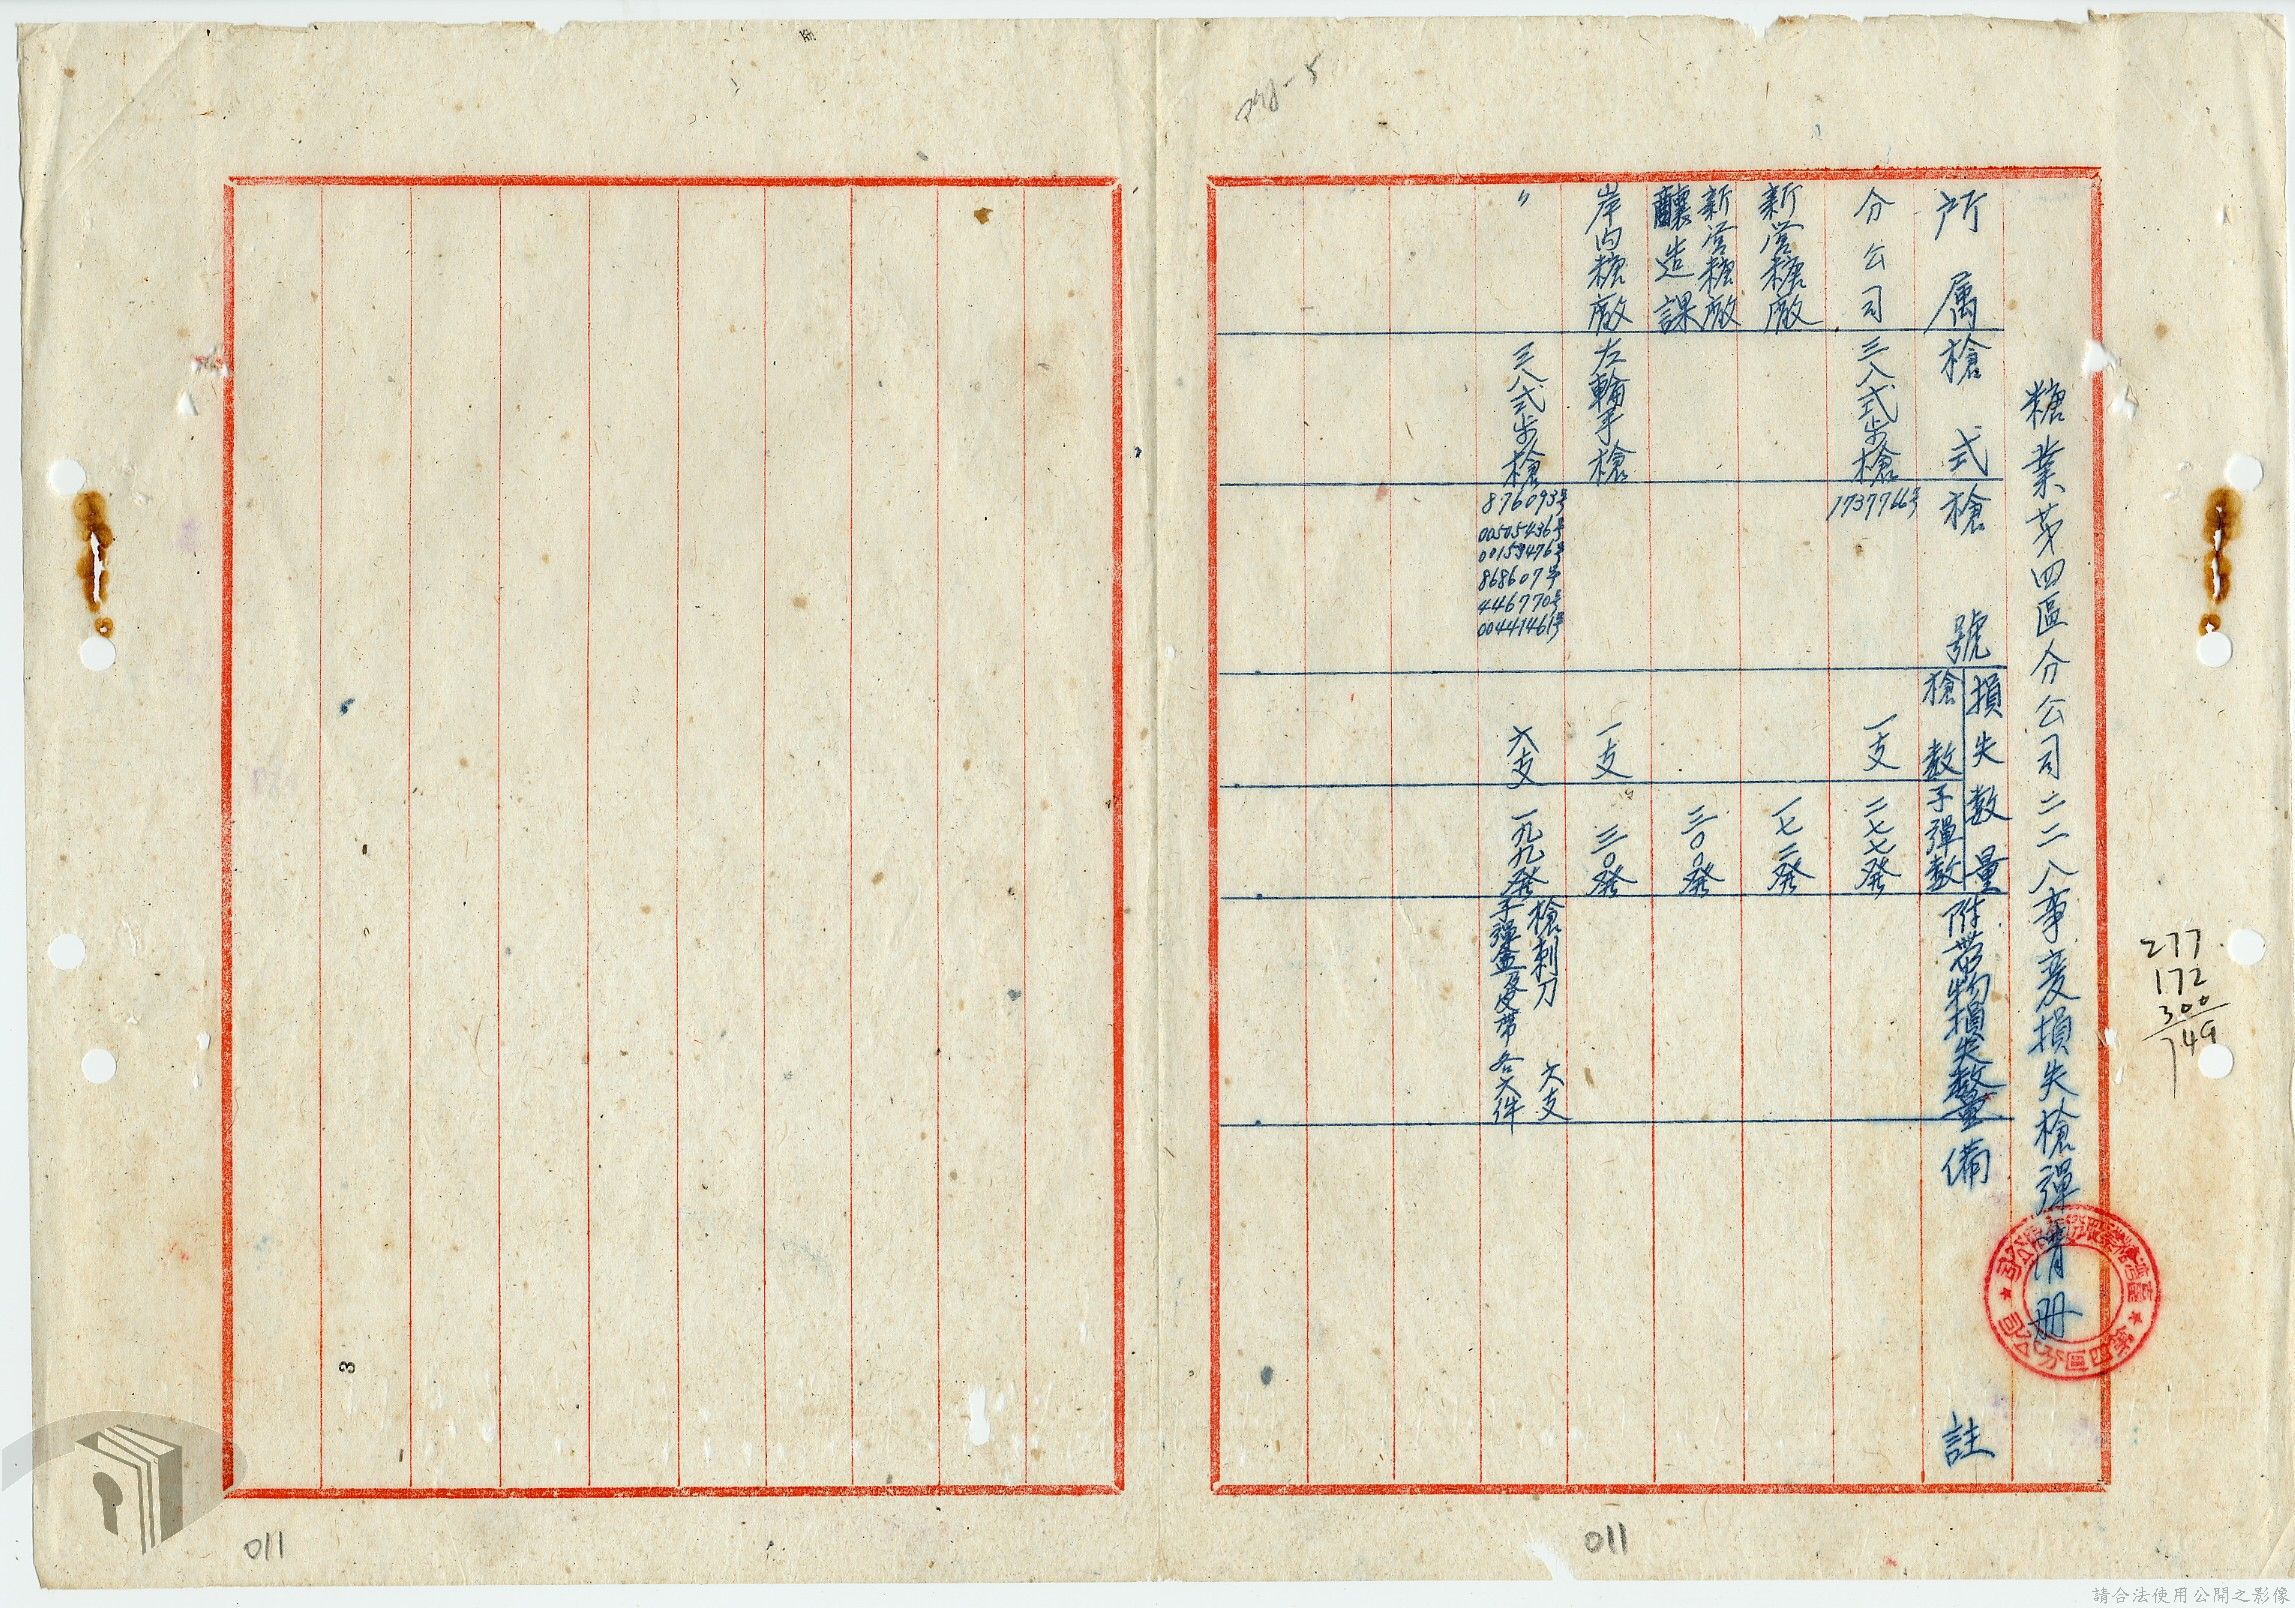 糖業第四區分公司二二八事变損失槍彈清册
所屬
槍式
槍號
損失數量
槍數
子彈數
附帶物損失數量
備註
分公司
三八式步槍
1737766号
一支
二七七発
新営糖廠
一七二発
新営糖廠
釀造課
三〇発
岸内糖廠
左輪手槍
一支
三〇発
〃
三八式步槍
876093号
00505436号
00159476号
868607号
446770号
00441461号
六支
一九九発
槍刺刀 六支
子彈盒及皮帶各六件
277
172
300
749
011
011
3
請合法使用公開之影像